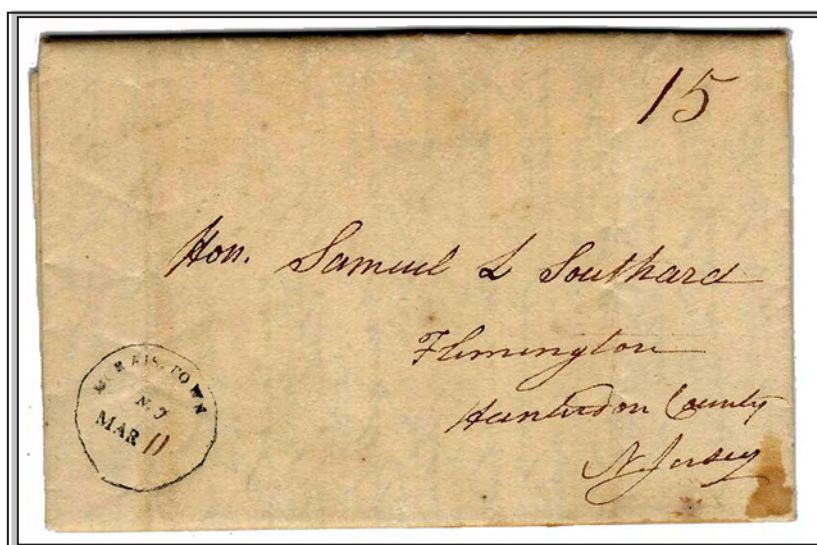 15
Hon. Samuel L Southard
Flemington
Hunterdon County
N Jersey
MORRIS.TOWN
N.J
MAR 11